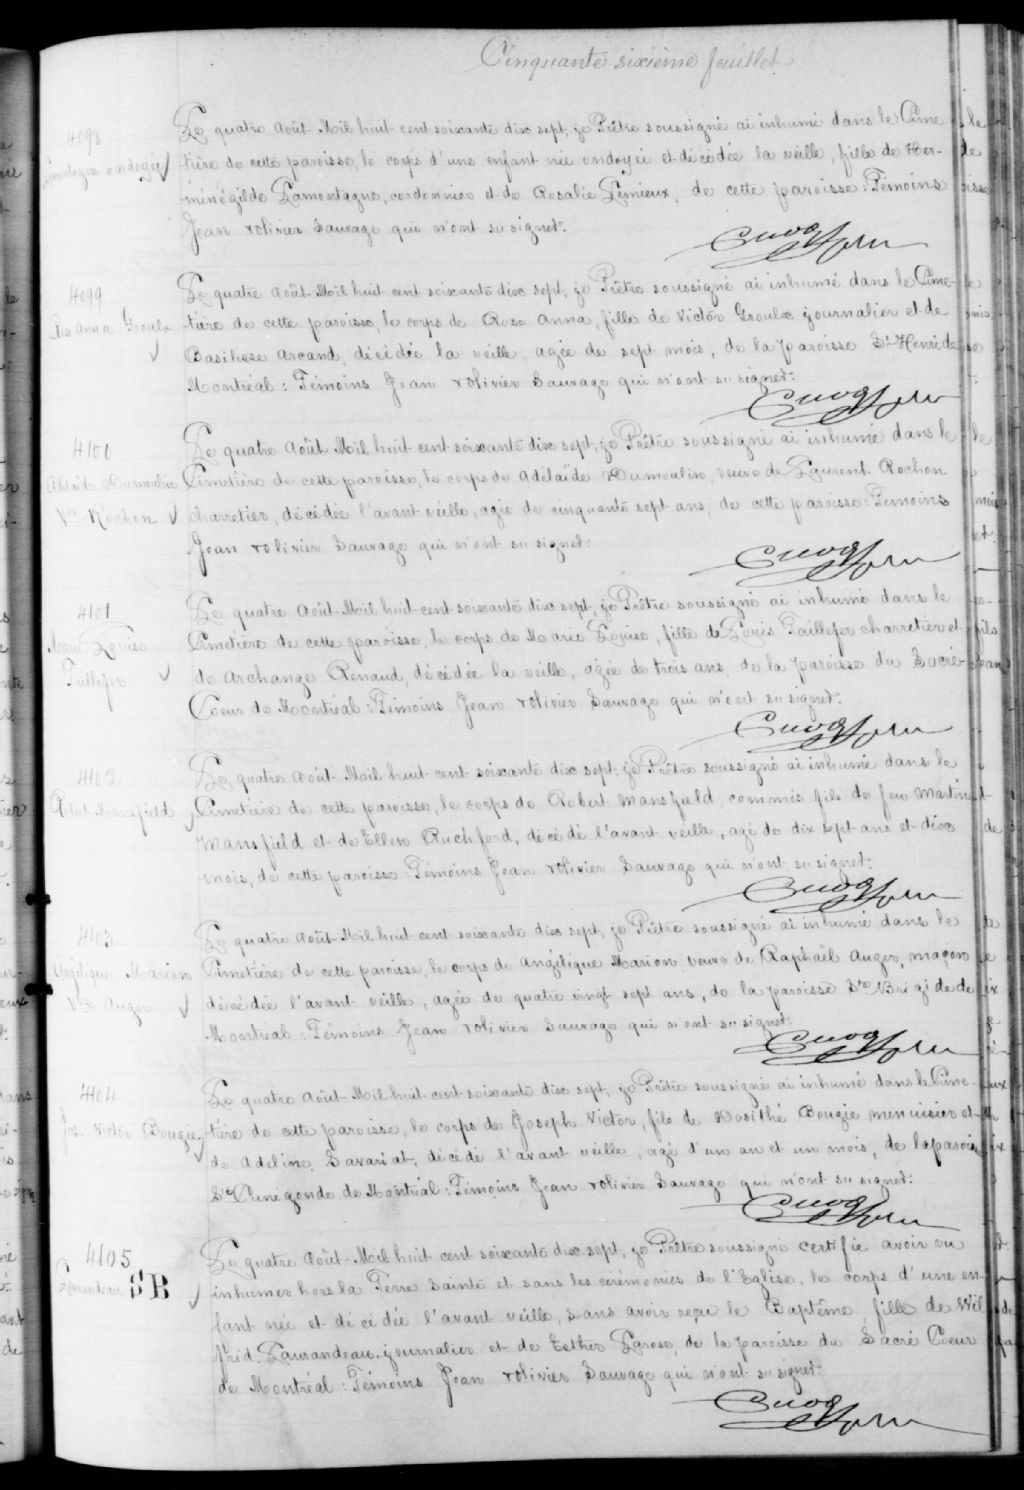 Cinquante sixième feuillet
4098
Lamontagne ondoyée
Le quatre Août Mil huit cent soixante dix sept, je Prêtre soussigné ai inhumé dans le Cime
tière de cette paroisse, le corps d'une enfant née ondoyée et décédée la veille, fille de Her-
ménégilde Lamontagne, cordonnier et de Rosalie Lemieux, de cette paroisse : Témoins
Jean & Olivier Sauvage qui n'ont su signer.
4099
Rs Anna Groulx
Le quatre Août Mil huit cent soixante dix sept, je Prêtre soussigné ai inhumé dans le Cime-
tière de cette paroisse, le corps de Rose Anna, fille de Victor Groulx journalier et de
Basilisse Arcand, décédée la veille, agée de sept mois, de la paroisse St Henri de
Montréal : Témoins Jean & Olivier Sauvage qui n'ont su signer.
4100
Adélaïde Dumoulin
Vve Rochon
Le quatre Août Mil huit cent soixante dix sept, je Prêtre soussigné ai inhumé dans le
Cimetière de cette paroisse, le corps de Adélaïde Dumoulin, veuve de Laurent Rochon
charretier, décédée l'avant veille, agée de cinquante sept ans, de cette paroisse : Témoins
Jean & Olivier Sauvage qui n'ont su signer.
4101
Marie Louise
Taillefer
Le quatre Août Mil huit cent soixante dix sept, je Prêtre soussigné ai inhumé dans le
Cimetière de cette paroisse, le corps de Marie Louise, fille de Louis Taillefer charretier et
de Archange Renaud, décédée la veille, agée de trois ans, de la paroisse du Sacré-
Coeur de Montréal : Témoins Jean & Olivier Sauvage qui n'ont su signer.
4102
Robert Mansfield
Le quatre Août Mil huit cent soixante dix sept, je Prêtre soussigné ai inhumé dans le
Cimetière de cette paroisse, le corps de Robert Mansfield, commis fils de feu Martin
Mansfield et de Ellen Ruchford, décédé l'avant veille, agé de dix sept ans et dix
mois, de cette paroisse : Témoins Jean & Olivier Sauvage qui n'ont su signer.
4103
Angélique Marion
Vve Auger
Le quatre Août Mil huit cent soixante dix sept, je Prêtre soussigné ai inhumé dans le
Cimetière de cette paroisse, le corps de Angélique Marion veuve de Raphaël Auger, maçon
décédée l'avant veille, agée de quatre vingt sept ans, de la paroisse Ste Brigide de
Montréal : Témoins Jean & Olivier Sauvage qui n'ont su signer.
4104
Jos. Victor Bougie
Le quatre Août Mil huit cent soixante dix sept, je Prêtre soussigné ai inhumé dans le Cime-
tière de cette paroisse, le corps de Joseph Victor, fils de Dosithé Bougie menuisier et
de Adeline Savariat, décédé l'avant veille, agé d'un an et un mois, de la paroisse
Ste Cunégonde de Montréal : Témoins Jean & Olivier Sauvage qui n'ont su signer.
4105
Laurandeau SB
Le quatre Août Mil huit cent soixante dix sept, je Prêtre soussigné certifie avoir vu
inhumer hors la Terre Sainte et sans les cérémonies de l'Eglise, le corps d'une en-
fant née et décédée l'avant veille, sans avoir reçu le Baptême, fille de Wil
frid Laurandeau journalier et de Esther Larose, de la paroisse du Sacré Coeur
de Montréal : Témoins Jean & Olivier Sauvage qui n'ont su signer.